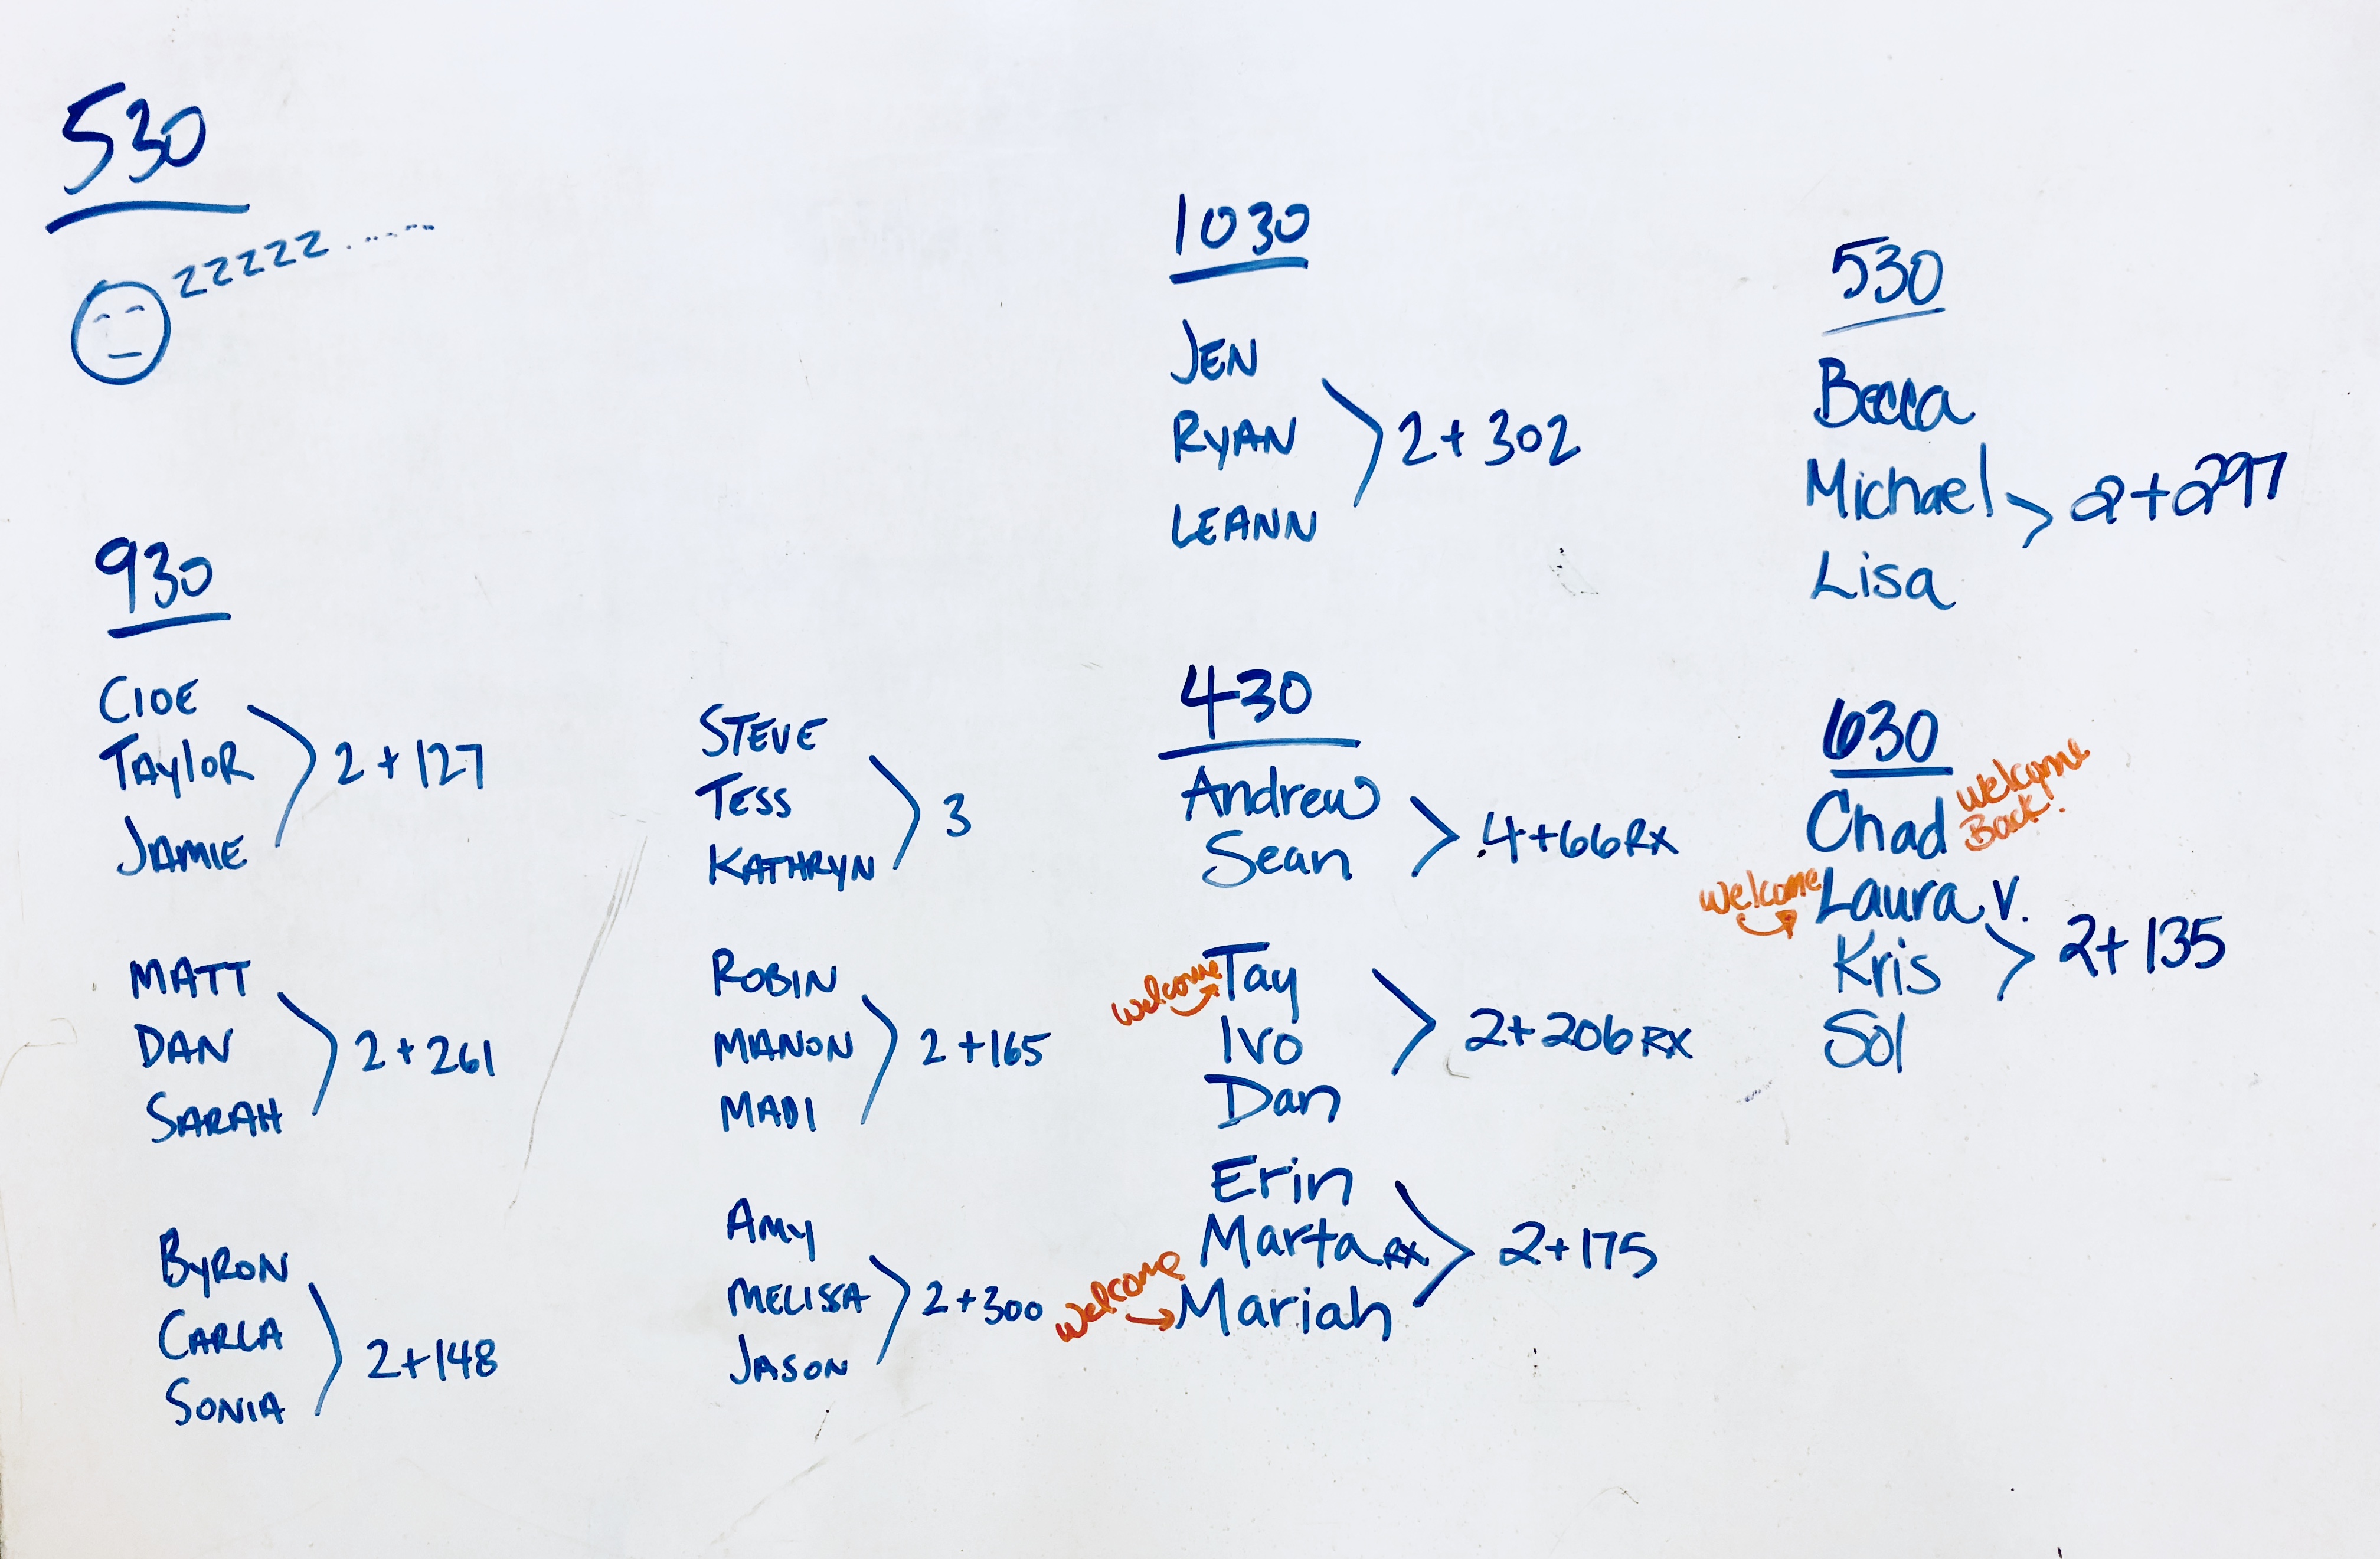 530
ZZZZZ.......
930
CLOE
TAYLOR
JAMIE
2 + 127
MATT
DAN
SARAH
2 + 261
BYRON
CARLA
SONIA
2 + 148
STEVE
TESS
KATHRYN
3
ROBIN
MANON
MADI
2 + 165
AMY
MELISSA
JASON
2 + 300
1030
JEN
RYAN
LEANN
2 + 302
430
Andrew
Sean
4 + 66 RX
welcome Tay
Ivo
Dan
2 + 206 RX
Erin
Marta RX
welcome Mariah
2 + 175
530
Becca
Michael
Lisa
2 + 297
630
Chad welcome Back!
welcome Laura V.
Kris
Sol
2 + 135